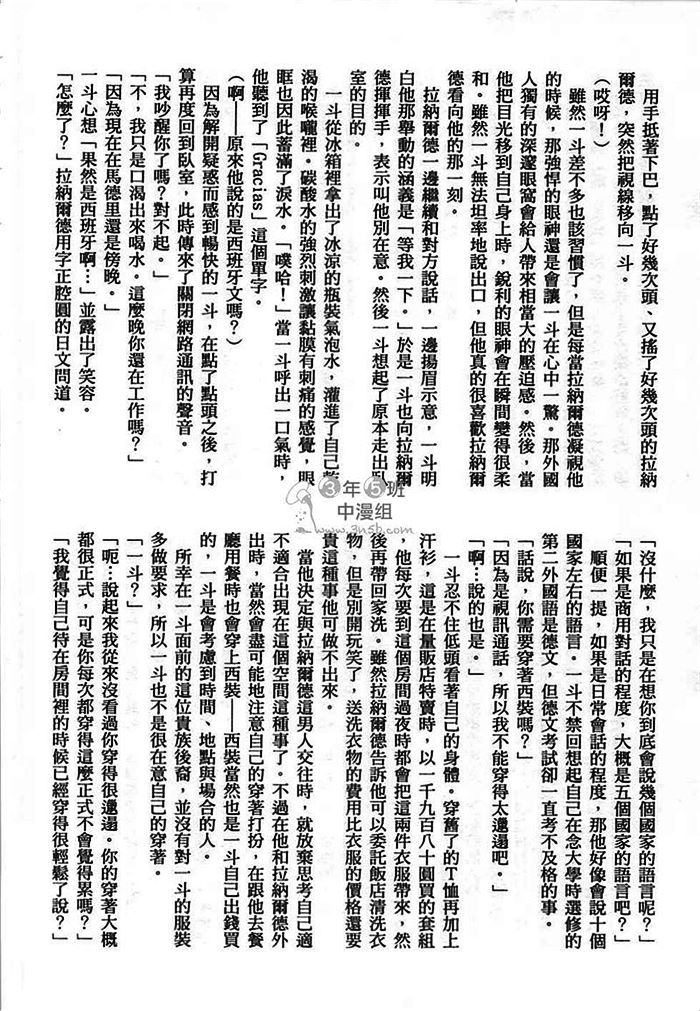 用手抵著下巴，點了好幾次頭、又搖了好幾次頭的拉納
爾德，突然把視線移向一斗。
（哎呀！）
雖然一斗差不多也該習慣了，但是每當拉納爾德凝視他
的時候，那強悍的眼神還是會讓一斗在心中一驚。那外國
人獨有的深邃眼窩會給人帶來相當大的壓迫感。然後，當
他把目光移到自己身上時，銳利的眼神會在瞬間變得很柔
和。雖然一斗無法坦率地說出口，但他真的很喜歡拉納爾
德看向他的那一刻。
拉納爾德一邊繼續和對方說話，一邊揚眉示意，一斗明
白他那舉動的涵義是「等我一下。」於是一斗也向拉納爾
德揮揮手，表示叫他別在意。然後一斗想起了原本走出臥
室的目的。
一斗從冰箱裡拿出了冰涼的瓶裝氣泡水，灌進了自己乾
渴的喉嚨裡。碳酸水的強烈刺激讓黏膜有刺痛的感覺，眼
眶也因此蓄滿了淚水。「噗哈！」當一斗呼出一口氣時，
他聽到了「Gracias」這個單字。
（啊——原來他說的是西班牙文嗎？）
因為解開疑惑而感到暢快的一斗，在點了點頭之後，打
算再度回到臥室，此時傳來了關閉網路通訊的聲音。
「我吵醒你了嗎？對不起。」
「不，我只是口渴出來喝水。這麼晚你還在工作嗎？」
「因為現在在馬德里還是傍晚。」
一斗心想「果然是西班牙啊…」並露出了笑容。
「怎麼了？」拉納爾德用字正腔圓的日文問道。
「沒什麼，我只是在想你到底會說幾個國家的語言呢？」
「如果是商用對話的程度，大概是五個國家的語言吧？」
順便一提，如果是日常會話的程度，那他好像會說十個
國家左右的語言。一斗不禁回想起自己在念大學時選修的
第二外國語是德文，但德文考試卻一直考不及格的事。
「話說，你需要穿著西裝嗎？」
「因為是視訊通話，所以我不能穿得太邋遢吧。」
「啊…說的也是。」
一斗忍不住低頭看著自己的身體。穿舊了的T恤再加上
汗衫，這是在量販店特賣時，以一千九百八十圓買的套組
，他每次要到這個房間過夜時都會把這兩件衣服帶來，然
後再帶回家洗。雖然拉納爾德告訴他可以委託飯店清洗衣
物，但是別開玩笑了，送洗衣物的費用比衣服的價格還要
貴這種事他可做不出來。
當他決定與拉納爾德這男人交往時，就放棄思考自己適
不適合出現在這個空間這種事了。不過在他和拉納爾德外
出時，當然會盡可能地注意自己的穿著打扮，在跟他去餐
廳用餐時也會穿上西裝——西裝當然也是一斗自己出錢買
的，一斗是會考慮到時間、地點與場合的人。
所幸在一斗面前的這位貴族後裔，並沒有對一斗的服裝
多做要求，所以一斗也不是很在意自己的穿著。
「一斗？」
「呃…說起來我從來沒看過你穿得很邋遢。你的穿著大概
都很正式，可是你每次都穿得這麼正式不會覺得累嗎？」
「我覺得自己待在房間裡的時候已經穿得很輕鬆了說？」
3年5班
中漫組
www.3n5b.com